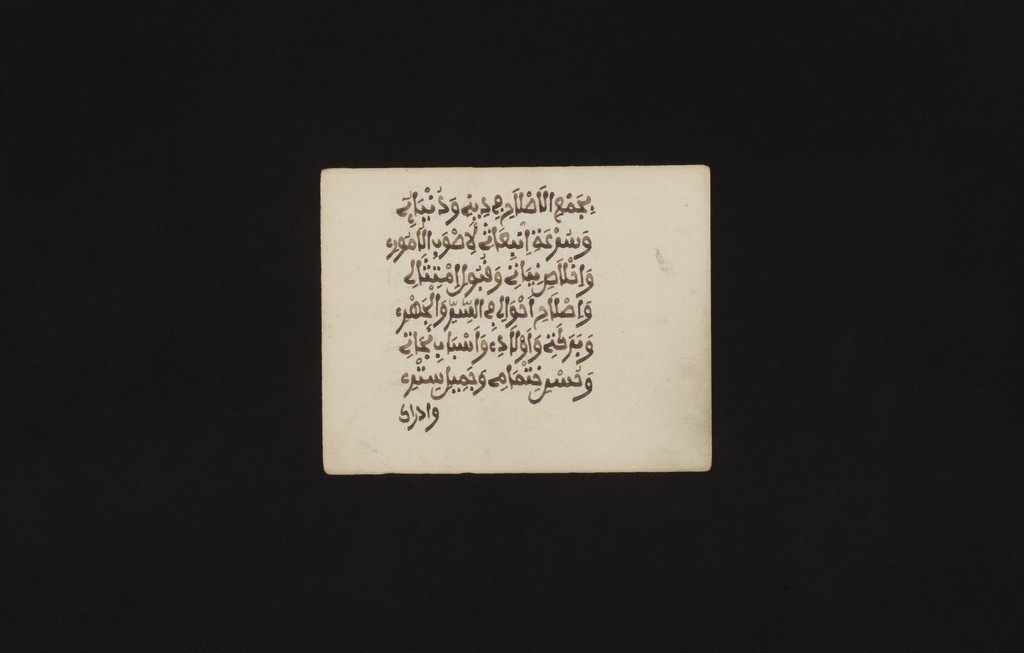 بِجَمْعِ الَاصْلَاحِ فِي دِينِي وَدُنْيَايَ
وَسُرْعَةِ اِنْبِعَاثِي لِاصْوَبِ الْاُمُورِ
وَاِخْلَاصِ نِيَّاتِي وَقَبُولِ اِمْتِثَالِي
وَاِصْلَاحِ اَحْوَالِي فِي السِّرِّ وَالْجَهْرِ
وَبَرَكَةِ وَاَوْلَادِي وَاَسْبَابِ نَجَاتِي
وَحُسْنِ خِتَامِي وَجَمِيلِ سِتْرِي
وادراك